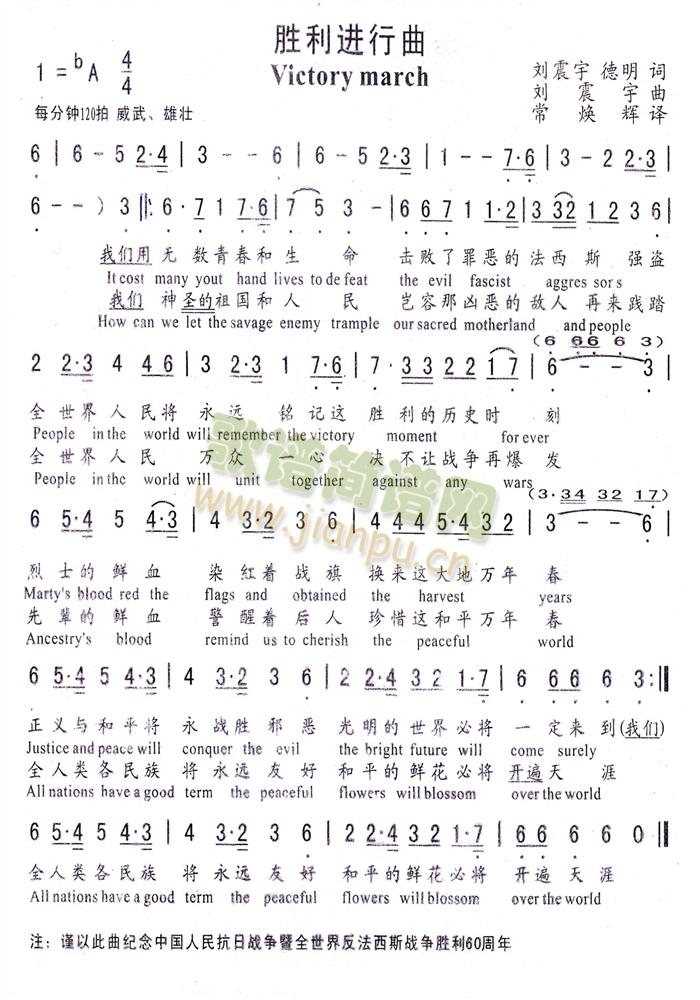 胜利进行曲
Victory march
1 = ᵇA 4/4
每分钟120拍 威武、雄壮
刘震宇 德明 词
刘 震 宇 曲
常 焕 辉 译
6 | 6 - 5 2·4 | 3 - - 6 | 6 - 5 2·3 | 1 - - 7·6 | 3 - 3 2·3 |
6 - - ) 3 |: 6·7 1 7·6 | 7 5 3 - | 6 6 7 1 1·2 | 3 32 1 2 3 6 |
我们用 无 数青春和 生 命 击败了罪恶的法西 斯 强盗
It cost many yout hand lives to de feat the evil fascist aggres sor s
我们 神圣的祖国和人 民 岂容那凶恶的敌人 再来践踏
How can we let the savage enemy trample our sacred motherland and people
(6 66 6 3)
2 2·3 4 4 6 | 3 2·3 1 7·6 | 7·3 3 2 2 1 7 | 6 - - 3 |
全 世界人民将 永远 铭记这 胜利的历史时 刻
People in the world will remember the victory moment for ever
全 世界人民 万众 一心 决 不让战争再爆 发
People in the world will unit together against any wars
歌谱简谱网
www.jianpu.cn
(3·34 32 17)
6 5·4 5 4·3 | 4 3·2 3 6 | 4 4 4 5·4 3 2 | 3 - - 6 |
烈 士的 鲜血 染红着 战旗 换来这大地万年 春
Marty's blood red the flags and obtained the harvest years
先 辈的 鲜血 警醒着 后人 珍惜这和平万年 春
Ancestry's blood remind us to cherish the peaceful world
6 5·4 5 4·3 | 4 3·2 3 6 | 2 2·4 3 2 1·7 | 6 6 6 3 :||
正义与和平将 永战胜 邪恶 光明的 世界必将 一定来到(我们)
Justice and peace will conquer the evil the bright future will come surely
全人类各民族 将永远友好 和平的鲜花必将 开遍天 涯
All nations have a good term the peaceful flowers will blossom over the world
6 5·4 5 4·3 | 4 3·2 3 6 | 2 2·4 3 2 1·7 | 6 6 6 6 0 ||
全人类各民族 将永远友好 和平的鲜花必将 开遍天涯
All nations have a good term the peaceful flowers will blossom over the world
注：谨以此曲纪念中国人民抗日战争暨全世界反法西斯战争胜利60周年